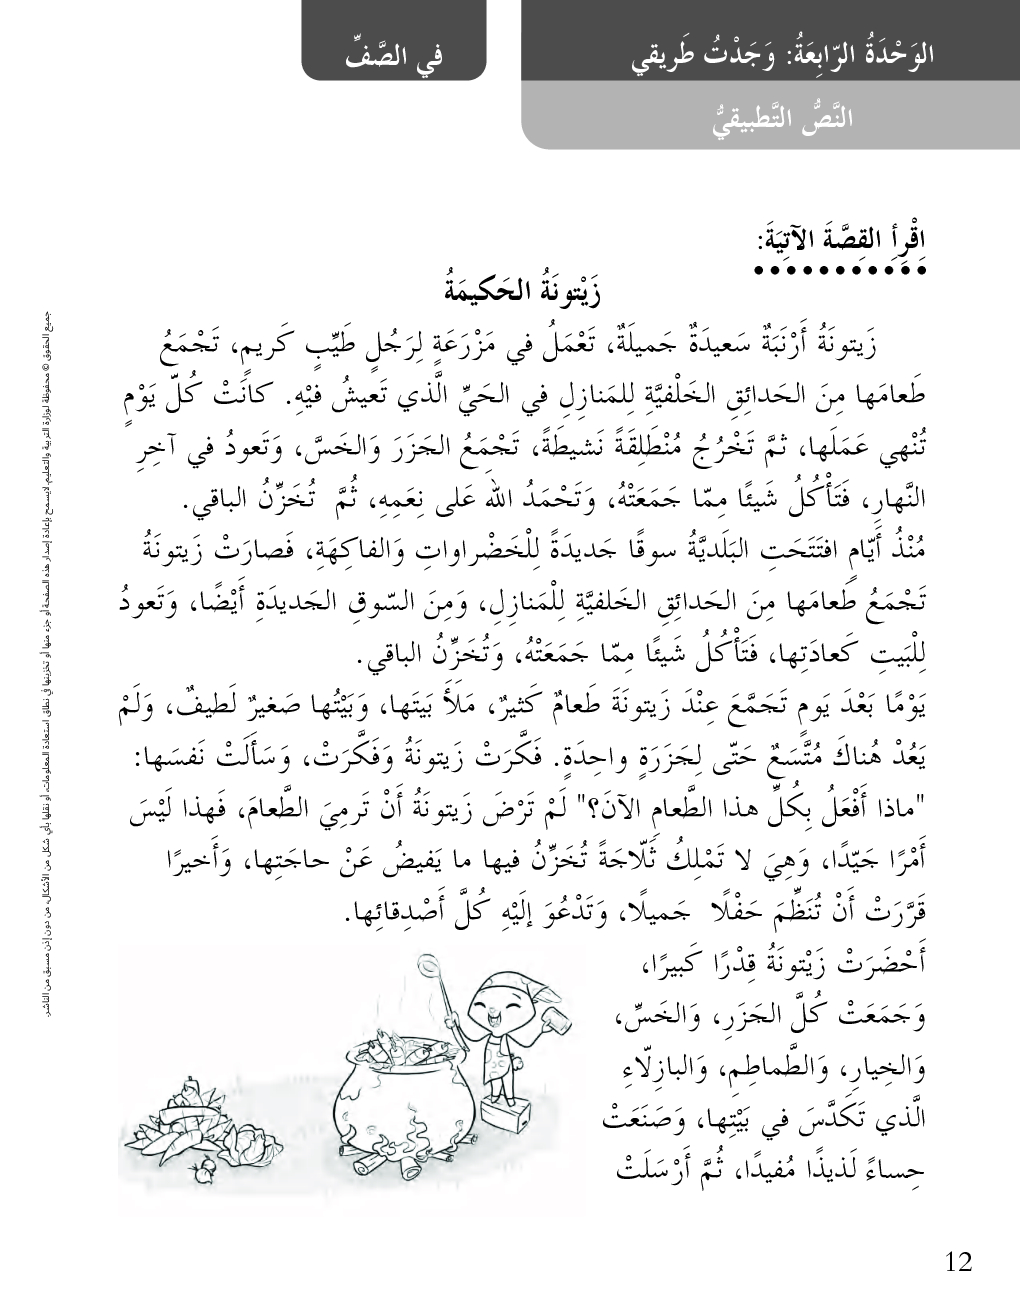 الوَحْدَةُ الرّابِعَةُ: وَجَدْتُ طَريقي
في الصَّفِّ
النَّصُّ التَّطبيقيُّ
اقْرِأِ القِصَّةَ الآتِيَةَ:
زَيْتونَةُ الحَكيمَةُ
زَيتونَةُ أَرْنَبَةٌ سَعيدَةٌ جَميلَةٌ، تَعْمَلُ في مَزْرَعَةٍ لِرَجُلٍ طَيِّبٍ كَريمٍ، تَجْمَعُ
طَعامَها مِنَ الحَدائِقِ الخَلْفيَّةِ لِلمَنازِلِ في الحَيِّ الَّذي تَعيشُ فيْهِ. كانَتْ كُلّ يَوْمٍ
تُنْهي عَمَلَها، ثمَّ تَخْرُجُ مُنْطَلِقَةً نَشيطَةً، تَجْمَعُ الجَزَرَ وَالخَسَّ، وَتَعودُ في آخِرِ
النَّهارِ، فَتَأْكُلُ شَيئًا مِمّا جَمَعَتْهُ، وَتَحْمَدُ اللّٰهَ عَلى نِعَمِهِ، ثُمَّ تُخَزِّنُ الباقي.
مُنْذُ أَيّامٍ افتَتَحَتِ البَلَديَّةُ سوقًا جَديدَةً لِلْخَضْراواتِ وَالفاكِهَةِ، فَصارَتْ زَيتونَةُ
تَجْمَعُ طَعامَها مِنَ الحَدائِقِ الخَلفيَّةِ لِلْمَنازِلِ، وَمِنَ السّوقِ الجَديدَةِ أَيْضًا، وَتَعودُ
لِلْبَيتِ كَعادَتِها، فَتَأْكُلُ شَيئًا مِمّا جَمَعَتْهُ، وَتُخَزِّنُ الباقي.
يَوْمًا بَعْدَ يَومٍ تَجَمَّعَ عِنْدَ زَيتونَةَ طَعامٌ كَثيرٌ، مَلَأَ بَيتَها، وَبَيْتُها صَغيرٌ لَطيفٌ، وَلَمْ
يَعُدْ هُناكَ مُتَّسَعٌ حَتّى لِجَزَرَةٍ واحِدَةٍ. فَكَّرَتْ زَيتونَةُ وَفَكَّرَتْ، وَسَأَلَتْ نَفسَها:
"ماذا أَفْعَلُ بِكُلِّ هذا الطَّعامِ الآنَ؟" لَمْ تَرْضَ زَيتونَةُ أَنْ تَرمِيَ الطَّعامَ، فَهذا لَيْسَ
أَمْرًا جَيّدًا، وَهِيَ لا تَمْلِكُ ثَلّاجَةً تُخَزِّنُ فيها ما يَفيضُ عَنْ حاجَتِها، وَأَخيرًا
قَرَّرَتْ أَنْ تُنَظِّمَ حَفْلًا جَميلًا، وَتَدْعُوَ إلَيْهِ كُلَّ أَصْدِقائِها.
أَحْضَرَتْ زَيْتونَةُ قِدْرًا كَبيرًا،
وَجَمَعَتْ كُلَّ الجَزَرِ، وَالخَسِّ،
وَالخِيارِ، وَالطَّماطِمِ، وَالبازِلّاءِ
الَّذي تَكَدَّسَ في بَيْتِها، وَصَنَعَتْ
حِساءً لَذيذًا مُفيدًا، ثُمَّ أَرْسَلَتْ
12
جميع الحقوق © محفوظة لوزارة التربية والتعليم. لايسمح بإعادة إصدار هذه الصفحة أو جزء منها أو تخزينها في نطاق استعادة المعلومات، أو نقلها بأي شكل من الأشكال، من دون إذن مسبق من الناشر.